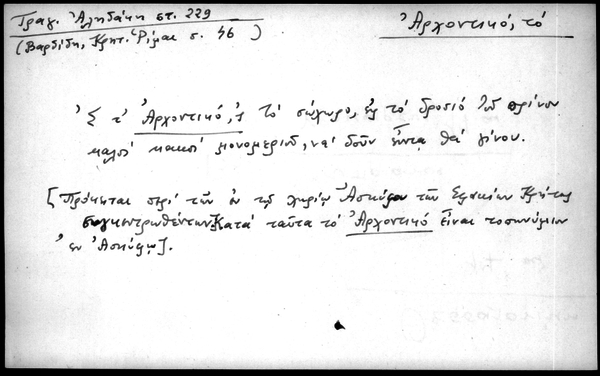 Τραγ. Ἀληδάκη στ. 229
(Βαρδίδη, Κρητ. Ρίμαι σ. 46)
Ἀρχοντικό, τό
Σ τ' Ἀρχοντικό, ς τό σώχωρο, ς τό δροσιό τοῦ πρίνου
μαζί μονομεριοῦ, νά δοῦν εἶντα θά γίνου.
[Πρόκειται περί τῶν ἐν τῷ χωρίῳ Ἀσκύφου τῶν Σφακίων Κρήτης
συγκεντρωθέντων. Κατά ταῦτα τό Ἀρχοντικό εἶναι τοπωνύμιον
ἐν Ἀσκύφῳ].